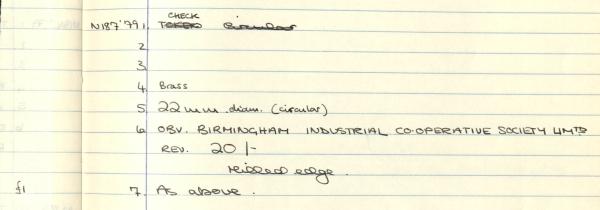 CHECK
N187'79 1. TOKEN Circular
2
3
4. Brass
5. 22mm diam. (circular)
6 OBV. BIRMINGHAM INDUSTRIAL CO-OPERATIVE SOCIETY LIMTD
REV. 20/-
milled edge.
£1 7. As above.